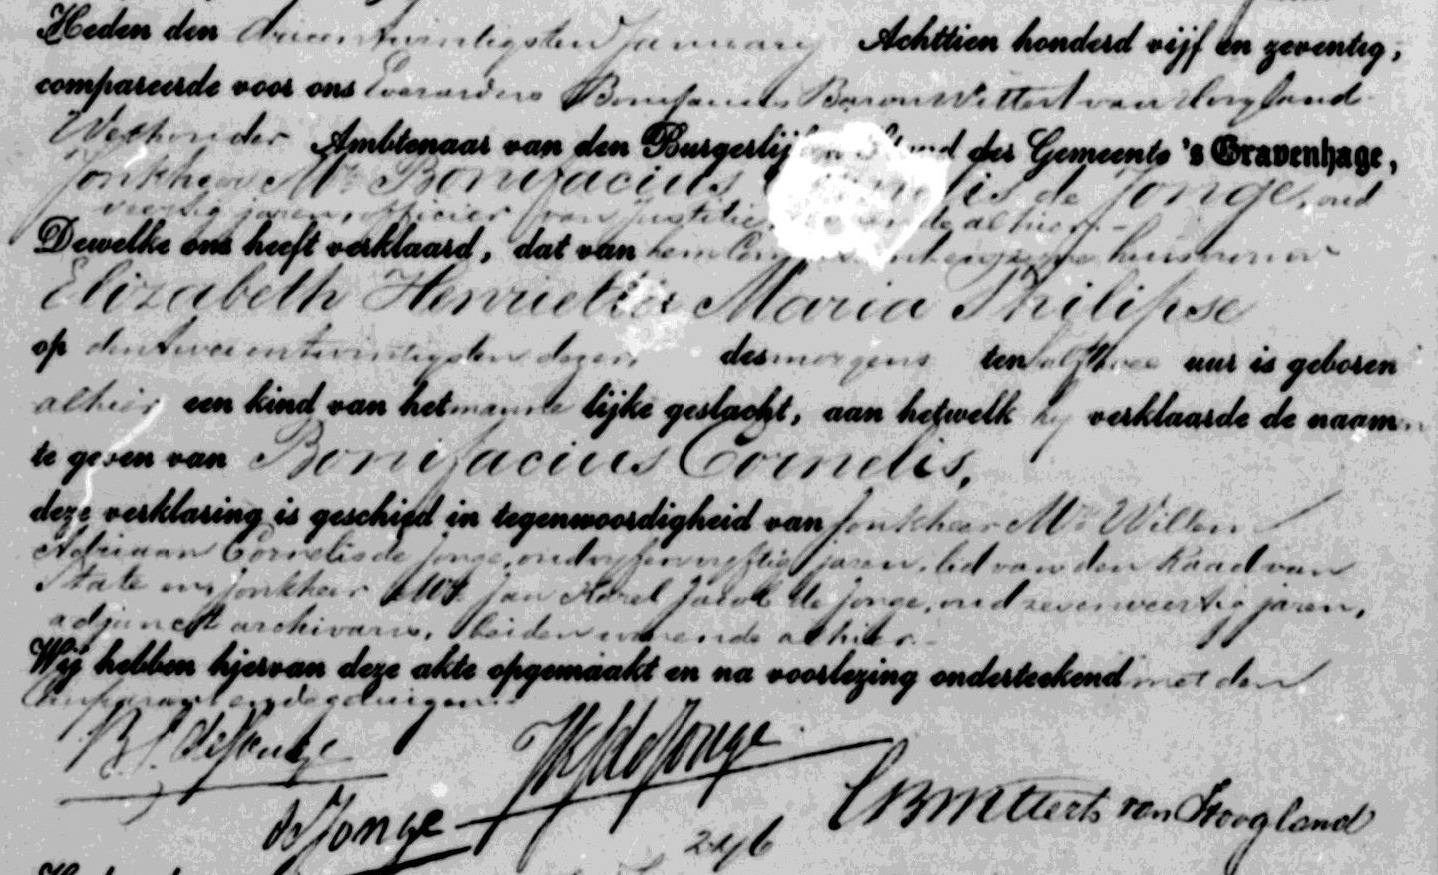 Heden den drieentwintigsten January Achttien honderd vijf en zeventig,
compareerde voor ons Everardus Bonifacius Baron Wittert van Hoogland
Wethouder Ambtenaar van den Burgerlijken Stand der Gemeente 's Gravenhage,
Jonkheer Mr Bonifacius Cornelis de Jonge, oud
veertig jaren, officier van Justitie, wonende alhier.
Dewelke ons heeft verklaard, dat van hem Comparant en huisvrouw
Elizabeth Henrietta Maria Philipse
op den tweeentwintigsten dezer, des morgens ten half twee uur is geboren
alhier een kind van het manne lijke geslacht, aan hetwelk hij verklaarde de naamen
te geven van Bonifacius Cornelis,
deze verklaring is geschied in tegenwoordigheid van Jonkheer Mr Willem
Adriaan Cornelis de Jonge, oud vyfenvyftig jaren, lid van den Raad van
State en jonkheer Mr Jan Karel Jacob de Jonge, oud zevenveertig jaren,
adjunct archivaris, beiden wonende alhier.
Wij hebben hiervan deze akte opgemaakt en na voorlezing onderteekend met den
Comparant en de getuigen.
B.C. de Jonge JKJ de Jonge
de Jonge EB Wittert van Hoogland